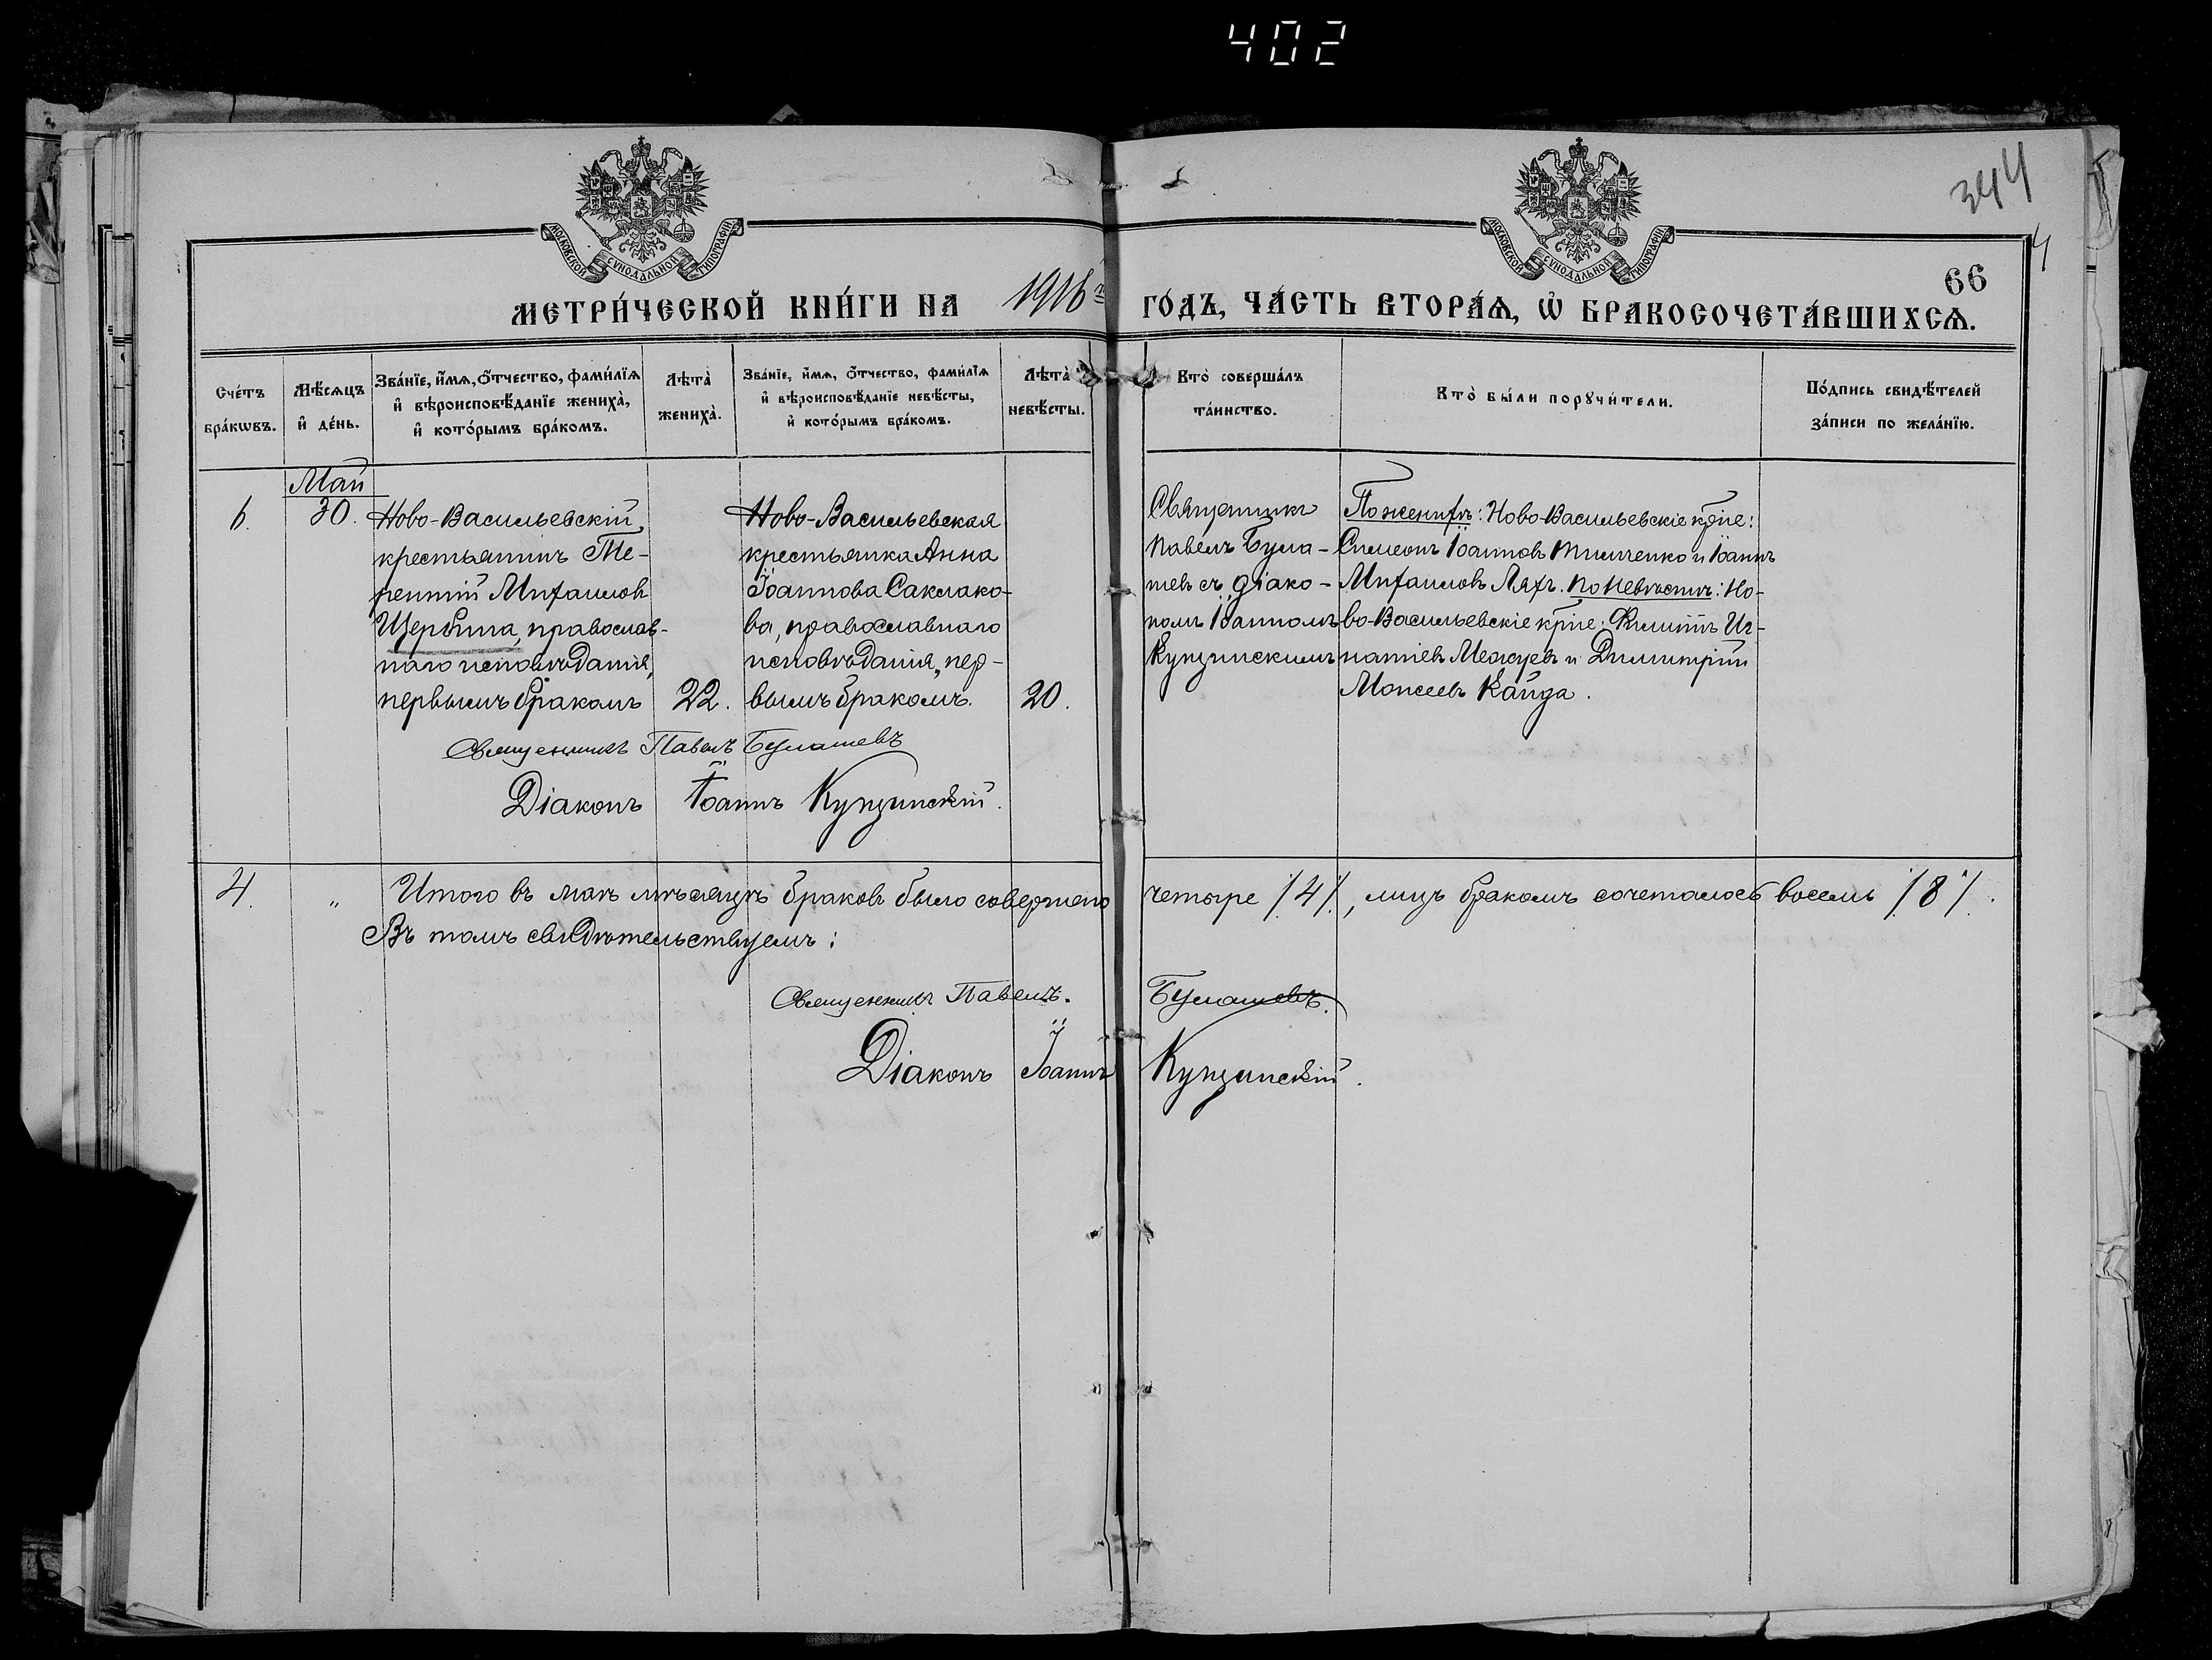 402
344
66
МОСКОВСКОЙ СѴНОДАЛЬНОЙ ТИПОГРАФІИ
МОСКОВСКОЙ СѴНОДАЛЬНОЙ ТИПОГРАФІИ
МЕТРИ́ЧЕСКОЙ КНИ́ГИ НА 1916 ГО́ДЪ, ЧА́СТЬ ВТОРА́Ѧ, Ѡ҆ БРАКОСОЧЕТА́ВШИХСѦ.
Сче́тъ бра́кѡвъ.
Мѣ́сяцъ и҆ де́нь.
Зва́нїе, и҆́мѧ, ѻ҆́тчество, фами́лїѧ
и҆ вѣроисповѣ́данїе жениха̀,
и҆ кото́рымъ бра́комъ.
Лѣта̀ жениха̀.
Зва́нїе, и҆́мѧ, ѻ҆́тчество, фами́лїѧ
и҆ вѣроисповѣ́данїе невѣ́сты,
и҆ кото́рымъ бра́комъ.
Лѣта̀ невѣ́сты.
Кто̀ соверша́лъ та́инство.
Кто̀ бы́ли порꙋчи́тели.
По́дпись свидѣ́телей
за́писи по жела́нїю.
Май
6. 30.
Ново-Васильевскій
крестьянинъ Те-
рентій Михаиловъ
Щербина, православ-
наго исповѣданія,
первымъ бракомъ
22.
Ново-Васильевская
крестьянка Анна
Іоаннова Саклако-
ва, православнаго
исповѣданія, пер-
вымъ бракомъ.
20.
Священникъ
Павелъ Була-
шевъ съ діако-
номъ Іоанномъ
Кунцинскимъ
По женихѣ: Ново-Васильевскіе кр̃не:
Симеонъ Іоанновъ Тимченко и Іоаннъ
Михаиловъ Ляхъ. По невѣстѣ: Но-
во-Васильевскіе кр̃не: Филиппъ Иг-
натіевъ Межуевъ и Димитрій
Моисеевъ Кайда.
Священникъ Павелъ Булашевъ
Діаконъ Іоаннъ Кунцинскій.
4. „ Итого въ маѣ мѣсяцѣ браковъ было совершено четыре /4/, лицъ бракомъ сочеталось восемь /8/.
Въ томъ свидѣтельствуемъ:
Священникъ Павелъ. Булашевъ.
Діаконъ Іоаннъ Кунцинскій.